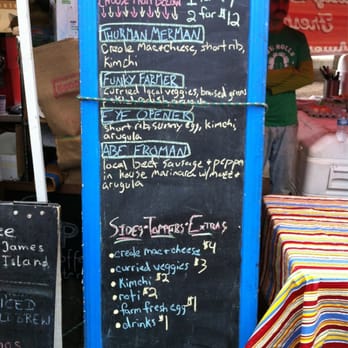 CHOOSE FROM BELOW
2 for $12
THURMAN MERMAN
Creole mac+cheese, short rib,
kimchi
FUNKY FARMER
curried local veggies, braised greens
arugula
EYE OPENER
short rib, sunny egg, kimchi,
arugula
ABE FROMAN
local beef sausage + peppers
in house marinara w/ mozz +
arugula
SIDES - TOPPERS - EXTRAS
• creole mac+cheese $4
• curried veggies $3
• Kimchi $2
• roti $2
• farm fresh egg $1
• drinks $1
James
Island
ICED
BREW
Fresh